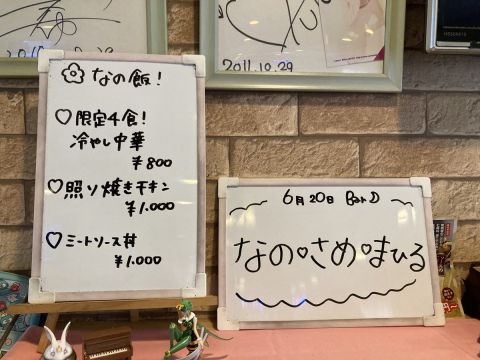 2011.10.29
なの飯!
♡限定4食!
冷やし中華
¥800
♡照り焼きチキン
¥1.000
♡ミートソース丼
¥1.000
6月20日 Bar D
なの♡さめ♡まひる